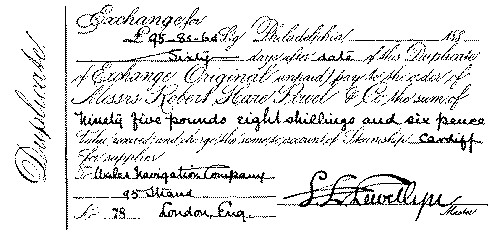 Duplicate
Exchange for
£95-8s-6d Stg Philadelphia 188
Sixty days after date of this Duplicate
of Exchange Original unpaid pay to the order of
Messrs Robert Hare Powel & Co the sum of
Ninety five pounds eight shillings and six pence
Value received and charge the same to account of Steamship Cardiff
For supplies
To Wales Navigation Company
95 Strand
No 78 London, Eng.
Master